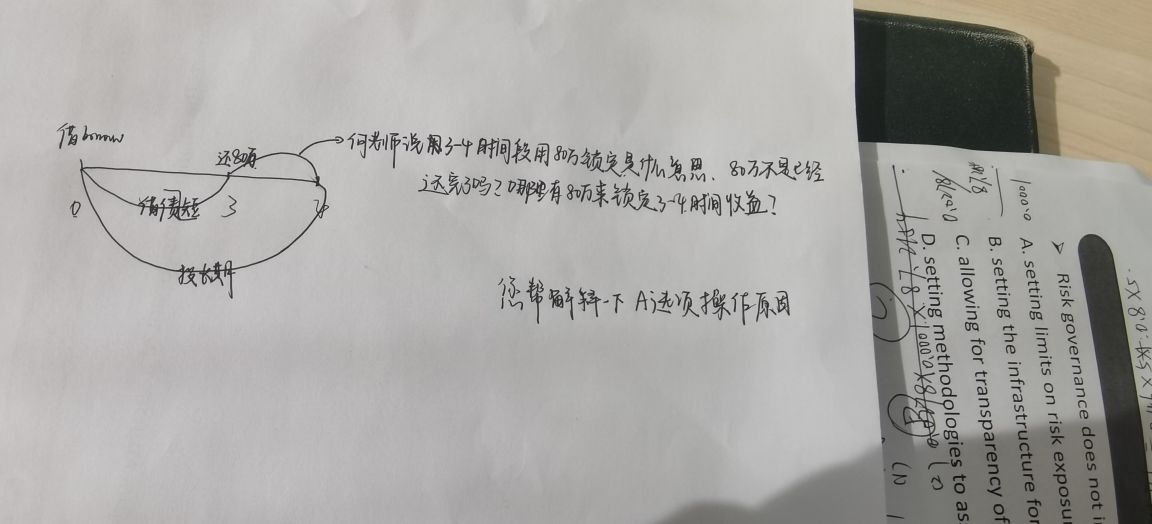 借borrow
还80万
何老师说用3-4时间段用80万锁定是什么意思、80万不是已经
还完了吗？哪里有80万来锁定3-4时间收益？
0
借债短
3
4
投长期
您帮解释一下A选项操作原因
Risk governance does not i
A. setting limits on risk exposu
B. setting the infrastructure for
C. allowing for transparency of
D. setting methodologies to as